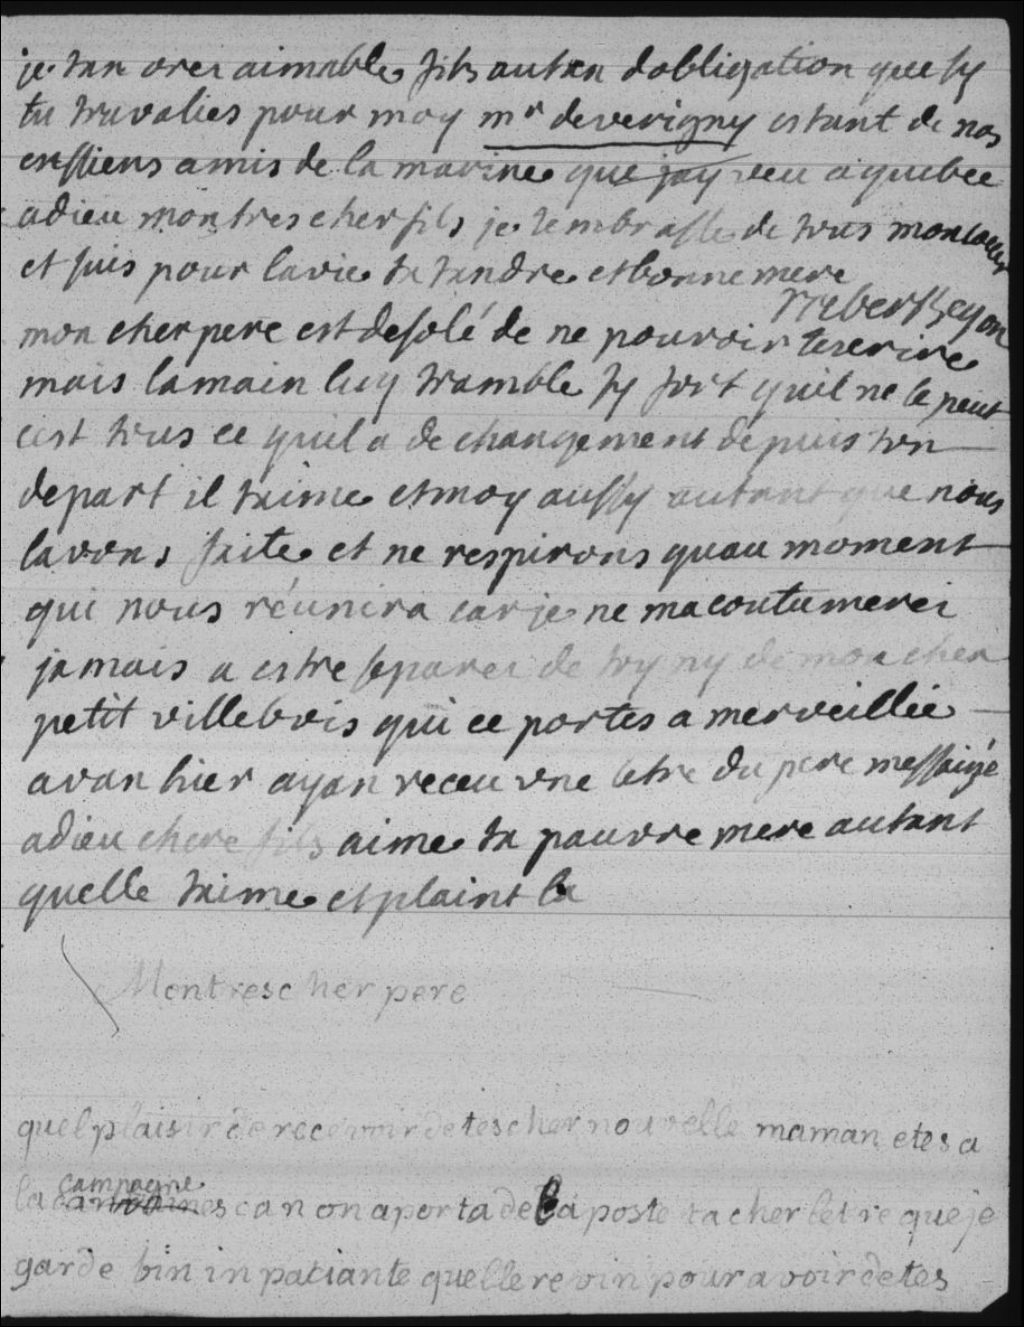 je tan orei aimable fils autan dobligation que sy
tu travalies pour moy mr deverigny estant de nos
enssiens amis de la marine que jay veu a quebec
adieu mon tres cher fils je tembrasse de tous mon coeur
et suis pour la vie ta tandre et bonne mere
mon cher pere est desolé de ne pouvoir tescrire
mais la main luy tramble sy fort quil ne le peut
cest tous ce quil a de changement depuis ton
depart il taime et moy aussy autant que nous
lavons faite et ne respirons quau moment
qui nous réunira car je ne macoutumerei
jamais a estre separei de toy ny de mon cher
petit villebois qui ce portes a merveillie
avan hier ayan receu une letre du pere messaigé
adieu chere fils aime ta pauvre mere autant
quelle taime et plaint la
Mon tres cher pere
quel plaisir de recevoir de tes cher nouvelle maman etes a
campagne
la can on aporta de la poste ta cher letre que je
garde bin inpatiante quelle revin pour avoir de tes